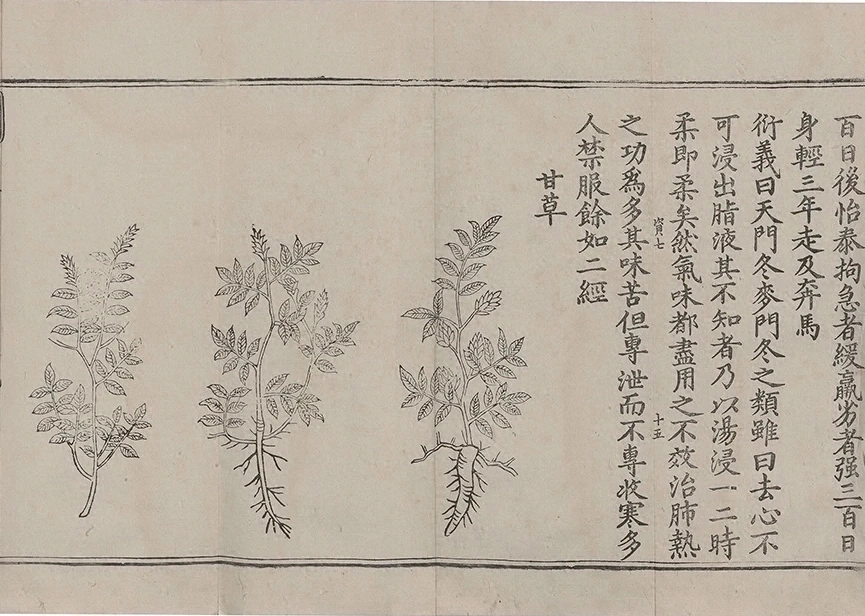 百日後怡泰拘急者緩羸劣者强三百日
身輕三年走及奔馬
衍義曰天門冬麥門冬之類雖曰去心不
可浸出脂液其不知者乃以湯浸一二時
柔即柔矣然氣味都盡用之不效治肺熱
資七
十五
之功爲多其味苦但專泄而不專收寒多
人禁服餘如二經
甘草